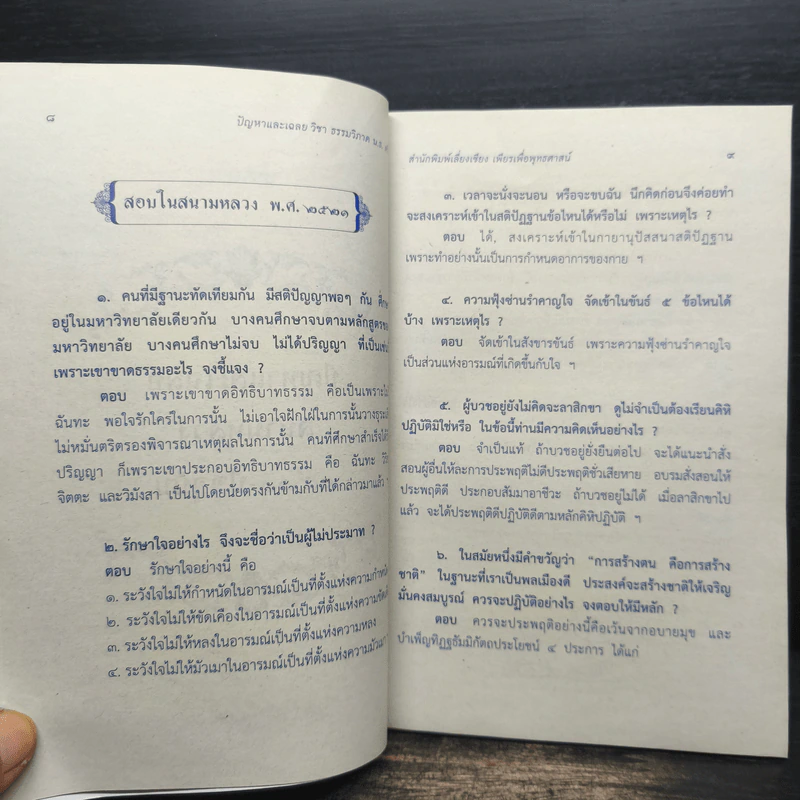 ๘
ปัญหาและเฉลย วิชา ธรรมวิภาค น.ธ.
สอบในสนามหลวง พ.ศ. ๒๕๒๑
๑. คนที่มีฐานะทัดเทียมกัน มีสติปัญญาพอๆ กัน ศึกษา
อยู่ในมหาวิทยาลัยเดียวกัน บางคนศึกษาจบตามหลักสูตรของ
มหาวิทยาลัย บางคนศึกษาไม่จบ ไม่ได้ปริญญา ที่เป็นเช่น
เพราะเขาขาดธรรมอะไร จงชี้แจง ?
ตอบ เพราะเขาขาดอิทธิบาทธรรม คือเป็นเพราะไม่
ฉันทะ พอใจรักใคร่ในการนั้น ไม่เอาใจฝักใฝ่ในการนั้นวางธุระ
ไม่หมั่นตริตรองพิจารณาเหตุผลในการนั้น คนที่ศึกษาสำเร็จได้
ปริญญา ก็เพราะเขาประกอบอิทธิบาทธรรม คือ ฉันทะ
จิตตะ และวิมังสา เป็นไปโดยนัยตรงกันข้ามกับที่ได้กล่าวมาแล้ว ฯ
๒. รักษาใจอย่างไร จึงจะชื่อว่าเป็นผู้ไม่ประมาท ?
ตอบ รักษาใจอย่างนี้ คือ
๑. ระวังใจไม่ให้กำหนัดในอารมณ์เป็นที่ตั้งแห่งความกำหนัด
๒. ระวังใจไม่ให้ขัดเคืองในอารมณ์เป็นที่ตั้งแห่งความขัดเคือง
๓. ระวังใจไม่ให้หลงในอารมณ์เป็นที่ตั้งแห่งความหลง
๔. ระวังใจไม่ให้มัวเมาในอารมณ์เป็นที่ตั้งแห่งความมัวเมา
สำนักพิมพ์เลี่ยงเชียง เพียรเพื่อพุทธศาสน์
๙
๓. เวลาจะนั่งจะนอน หรือจะขบฉัน นึกคิดก่อนจึงค่อยทำ
จะสงเคราะห์เข้าในสติปัฏฐานข้อไหนได้หรือไม่ เพราะเหตุไร ?
ตอบ ได้, สงเคราะห์เข้าในกายานุปัสสนาสติปัฏฐาน
เพราะทำอย่างนั้นเป็นการกำหนดอาการของกาย ฯ
๔. ความฟุ้งซ่านรำคาญใจ จัดเข้าในขันธ์ ๕ ข้อไหนได้
บ้าง เพราะเหตุไร ?
ตอบ จัดเข้าในสังขารขันธ์ เพราะความฟุ้งซ่านรำคาญใจ
เป็นส่วนแห่งอารมณ์ที่เกิดขึ้นกับใจ ฯ
๕. ผู้บวชอยู่ยังไม่คิดจะลาสิกขา ดูไม่จำเป็นต้องเรียนคิหิ
ปฏิบัติมิใช่หรือ ในข้อนี้ท่านมีความคิดเห็นอย่างไร ?
ตอบ จำเป็นแท้ ถ้าบวชอยู่ยั่งยืนต่อไป จะได้แนะนำสั่ง
สอนผู้อื่นให้ละการประพฤติไม่ดีประพฤติชั่วเสียหาย อบรมสั่งสอนให้
ประพฤติดี ประกอบสัมมาอาชีวะ ถ้าบวชอยู่ไม่ได้ เมื่อลาสิกขาไป
แล้ว จะได้ประพฤติดีปฏิบัติดีตามหลักคิหิปฏิบัติ ฯ
๖. ในสมัยหนึ่งมีคำขวัญว่า “การสร้างตน คือการสร้าง
ชาติ” ในฐานะที่เราเป็นพลเมืองดี ประสงค์จะสร้างชาติให้เจริญ
มั่นคงสมบูรณ์ ควรจะปฏิบัติอย่างไร จงตอบให้มีหลัก ?
ตอบ ควรจะประพฤติอย่างนี้คือเว้นจากอบายมุข และ
บำเพ็ญทิฏฐธัมมิกัตถประโยชน์ ๔ ประการ ได้แก่